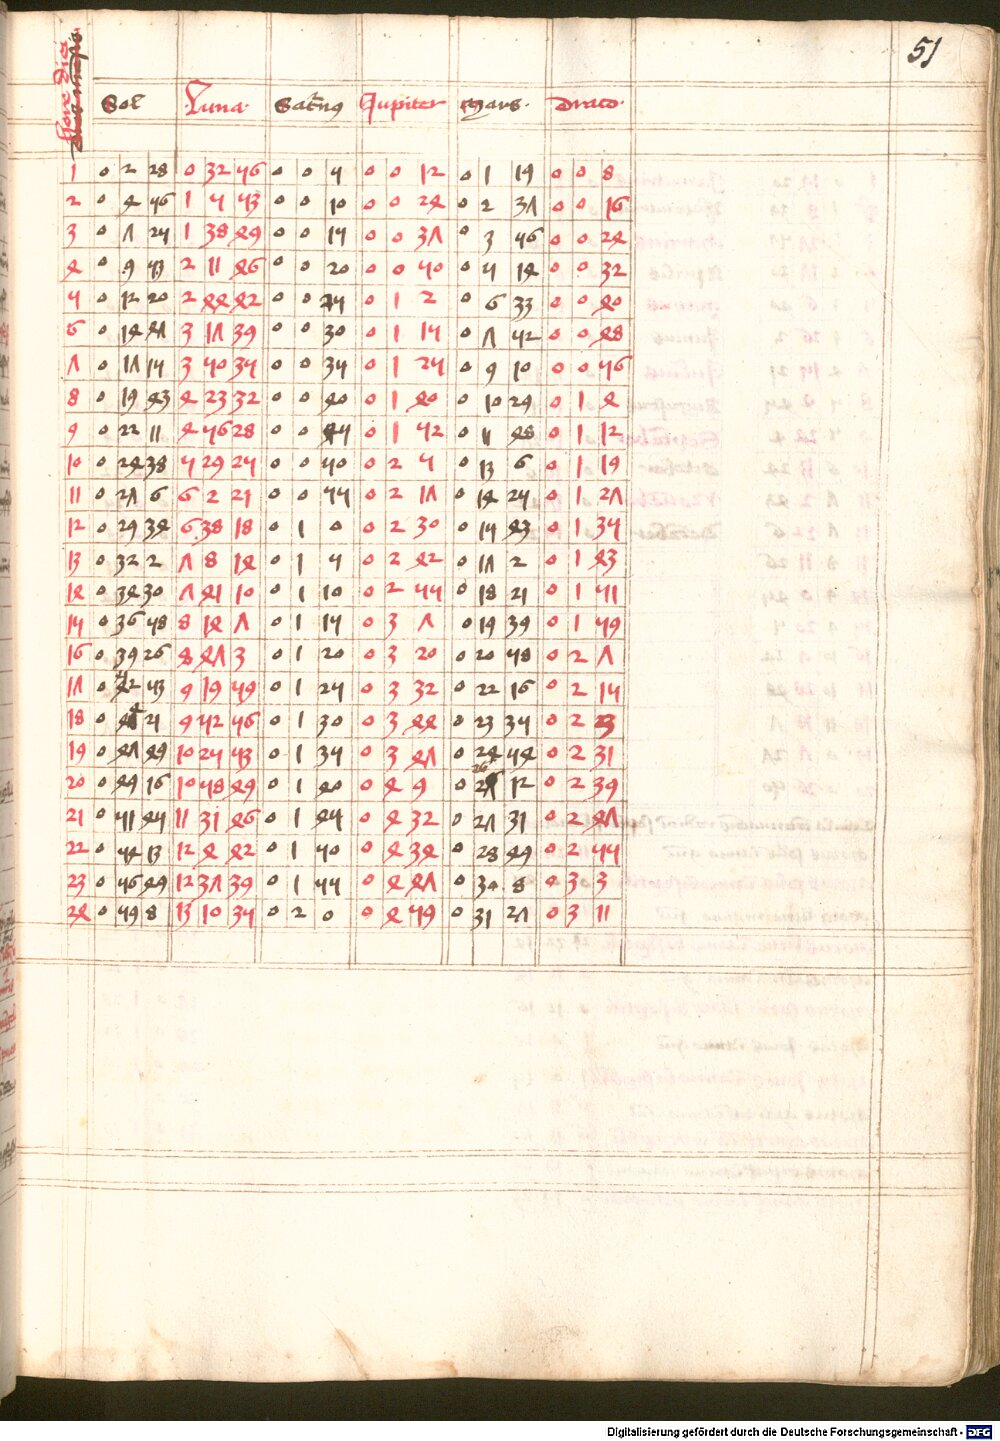 51
hore diei
Sol Luna Saturnus Jupiter Mars Draco
1 0 2 28 0 32 56 0 0 5 0 0 12 0 1 19 0 0 8
2 0 4 56 1 5 53 0 0 10 0 0 24 0 2 37 0 0 16
3 0 7 24 1 38 49 0 0 15 0 0 37 0 3 56 0 0 24
4 0 9 53 2 11 46 0 0 20 0 0 50 0 5 14 0 0 32
5 0 12 20 2 44 42 0 0 25 0 1 2 0 6 33 0 0 40
6 0 14 47 3 17 39 0 0 30 0 1 15 0 7 52 0 0 48
7 0 17 15 3 50 35 0 0 35 0 1 25 0 9 10 0 0 56
8 0 19 43 4 23 32 0 0 40 0 1 40 0 10 29 0 1 4
9 0 22 11 4 56 28 0 0 45 0 1 52 0 11 48 0 1 12
10 0 24 38 5 29 25 0 0 50 0 2 5 0 13 6 0 1 19
11 0 27 6 6 2 21 0 0 55 0 2 17 0 14 25 0 1 27
12 0 29 34 6 38 18 0 1 0 0 2 30 0 15 43 0 1 35
13 0 32 2 7 8 14 0 1 5 0 2 42 0 17 2 0 1 43
14 0 34 30 7 41 10 0 1 10 0 2 55 0 18 21 0 1 51
15 0 36 58 8 14 7 0 1 15 0 3 7 0 19 39 0 1 59
16 0 39 26 8 47 3 0 1 20 0 3 20 0 20 58 0 2 7
17 0 42 53 9 19 59 0 1 25 0 3 32 0 22 16 0 2 15
18 0 44 21 9 52 56 0 1 30 0 3 44 0 23 35 0 2 23
19 0 47 49 10 25 53 0 1 35 0 3 47 0 24 54 0 2 31
20 0 49 16 10 58 49 0 1 40 0 4 9 0 26 12 0 2 39
21 0 51 45 11 31 46 0 1 45 0 4 32 0 27 31 0 2 47
22 0 54 13 12 4 42 0 1 50 0 4 34 0 28 49 0 2 55
23 0 56 49 12 37 39 0 1 55 0 4 47 0 30 8 0 3 3
24 0 59 8 13 10 35 0 2 0 0 4 59 0 31 27 0 3 11
Digitalisierung gefördert durch die Deutsche Forschungsgemeinschaft - DFG